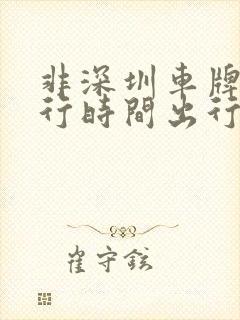 非深圳車牌
行時間出行
崔守鉉